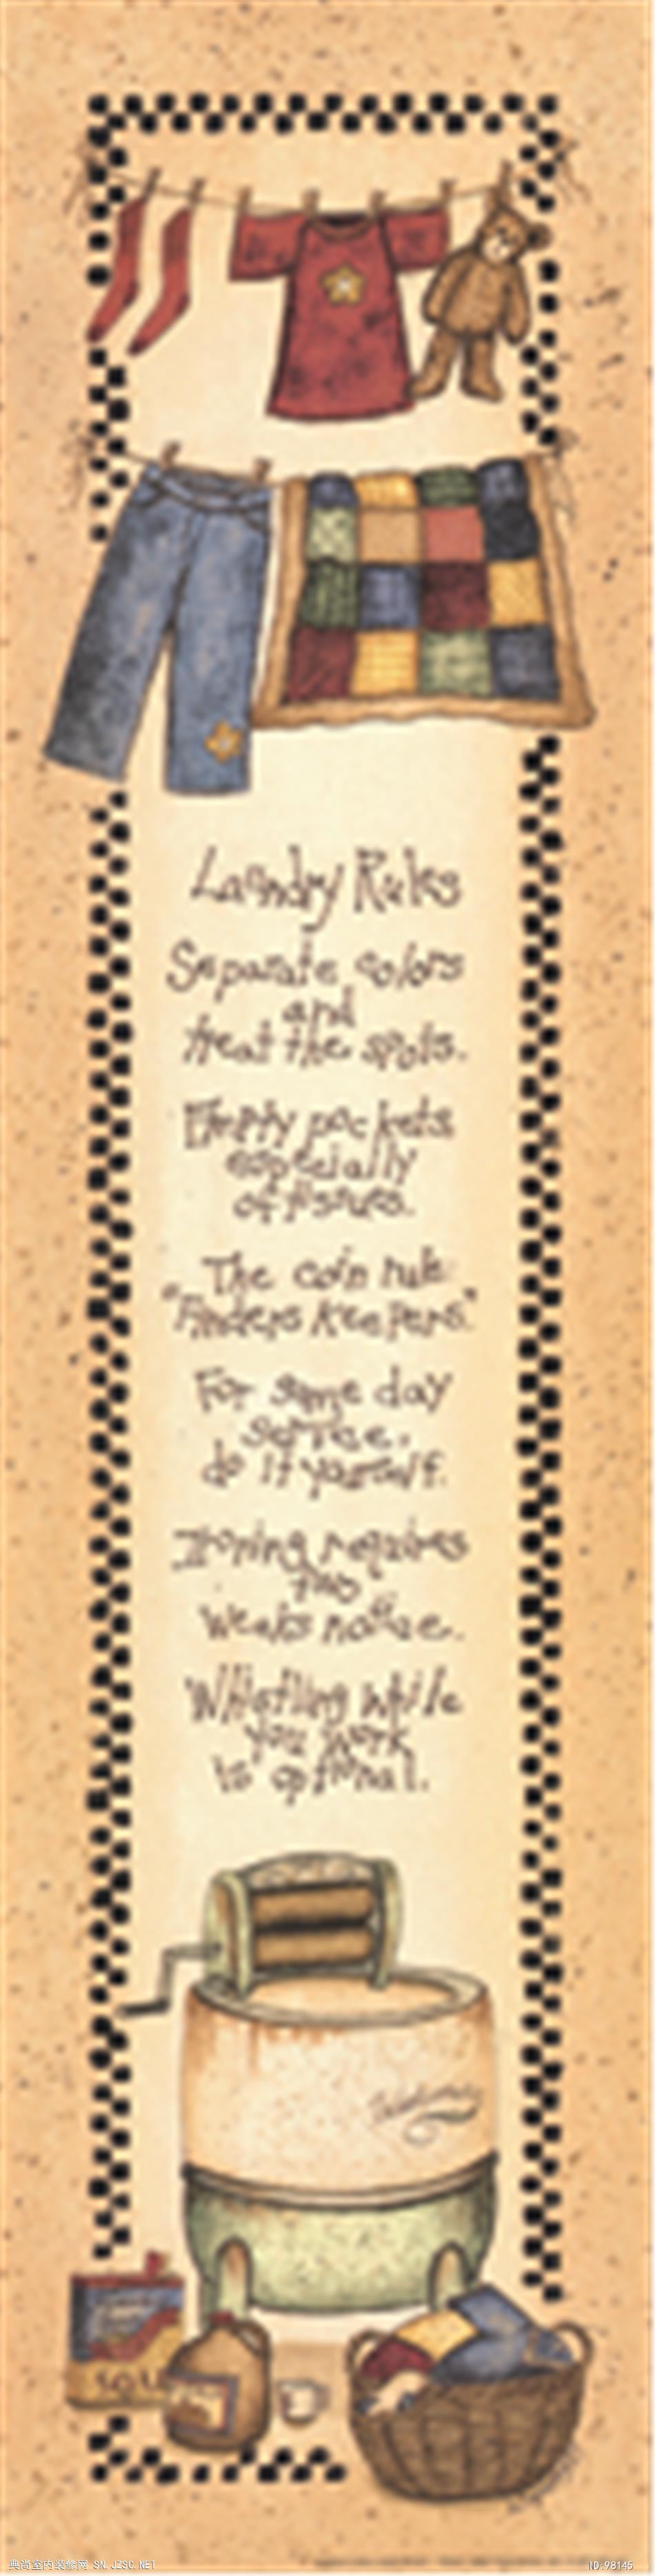 Laundry Rules
Separate colors
and
treat the spots.
Empty pockets
especially
of tissues.
The coin rule:
"Finders Keepers."
For same day
service,
do it yourself.
Ironing requires
two
weeks notice.
Whistling while
you work
is optional.
SOAP
典尚室内装修网 SN.JZSC.NET
ID:98145